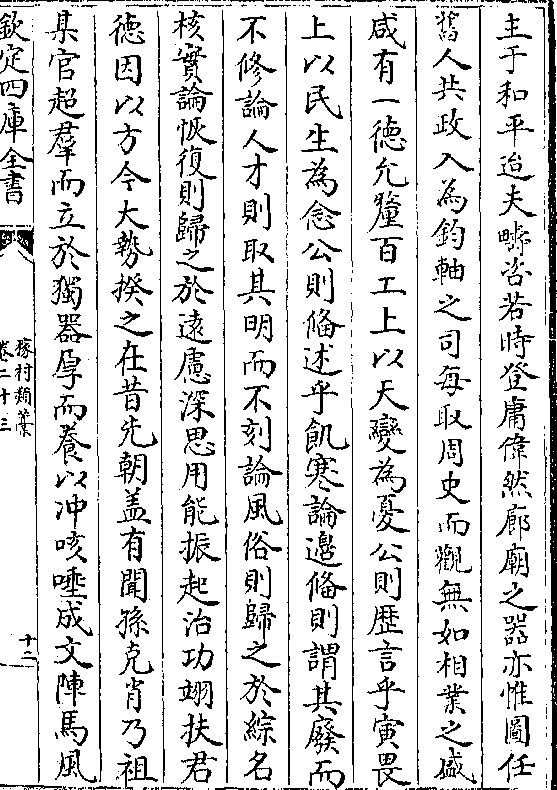 主于和平迨夫疇咨若時登庸偉然廊廟之器亦惟圖任
舊人共政入為鈞軸之司每取周史而觀無如相業之盛
咸有一德允釐百工上以天變為憂公則歴言乎寅畏
上以民生為念公則偹述乎飢寒論邉偹則謂其廢而
不修論人才則取其明而不刻論風俗則歸之於綜名
核實論恢復則歸之於逺慮深思用能振起治功翊扶君
德因以方今大勢揆之在昔先朝盖有聞孫克肖乃祖
某官超羣而立於獨器厚而養以冲咳唾成文陣馬風
欽定四庫全書
稼村類藁
卷二十三
十二